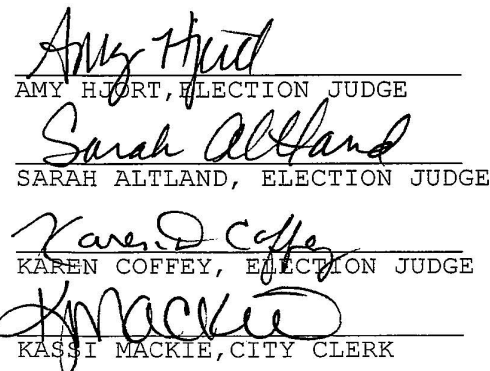 Amy Hjort
AMY HJORT, ELECTION JUDGE
Sarah Altland
SARAH ALTLAND, ELECTION JUDGE
Karen D Coffey
KAREN COFFEY, ELECTION JUDGE
K Mackie
KASSI MACKIE, CITY CLERK